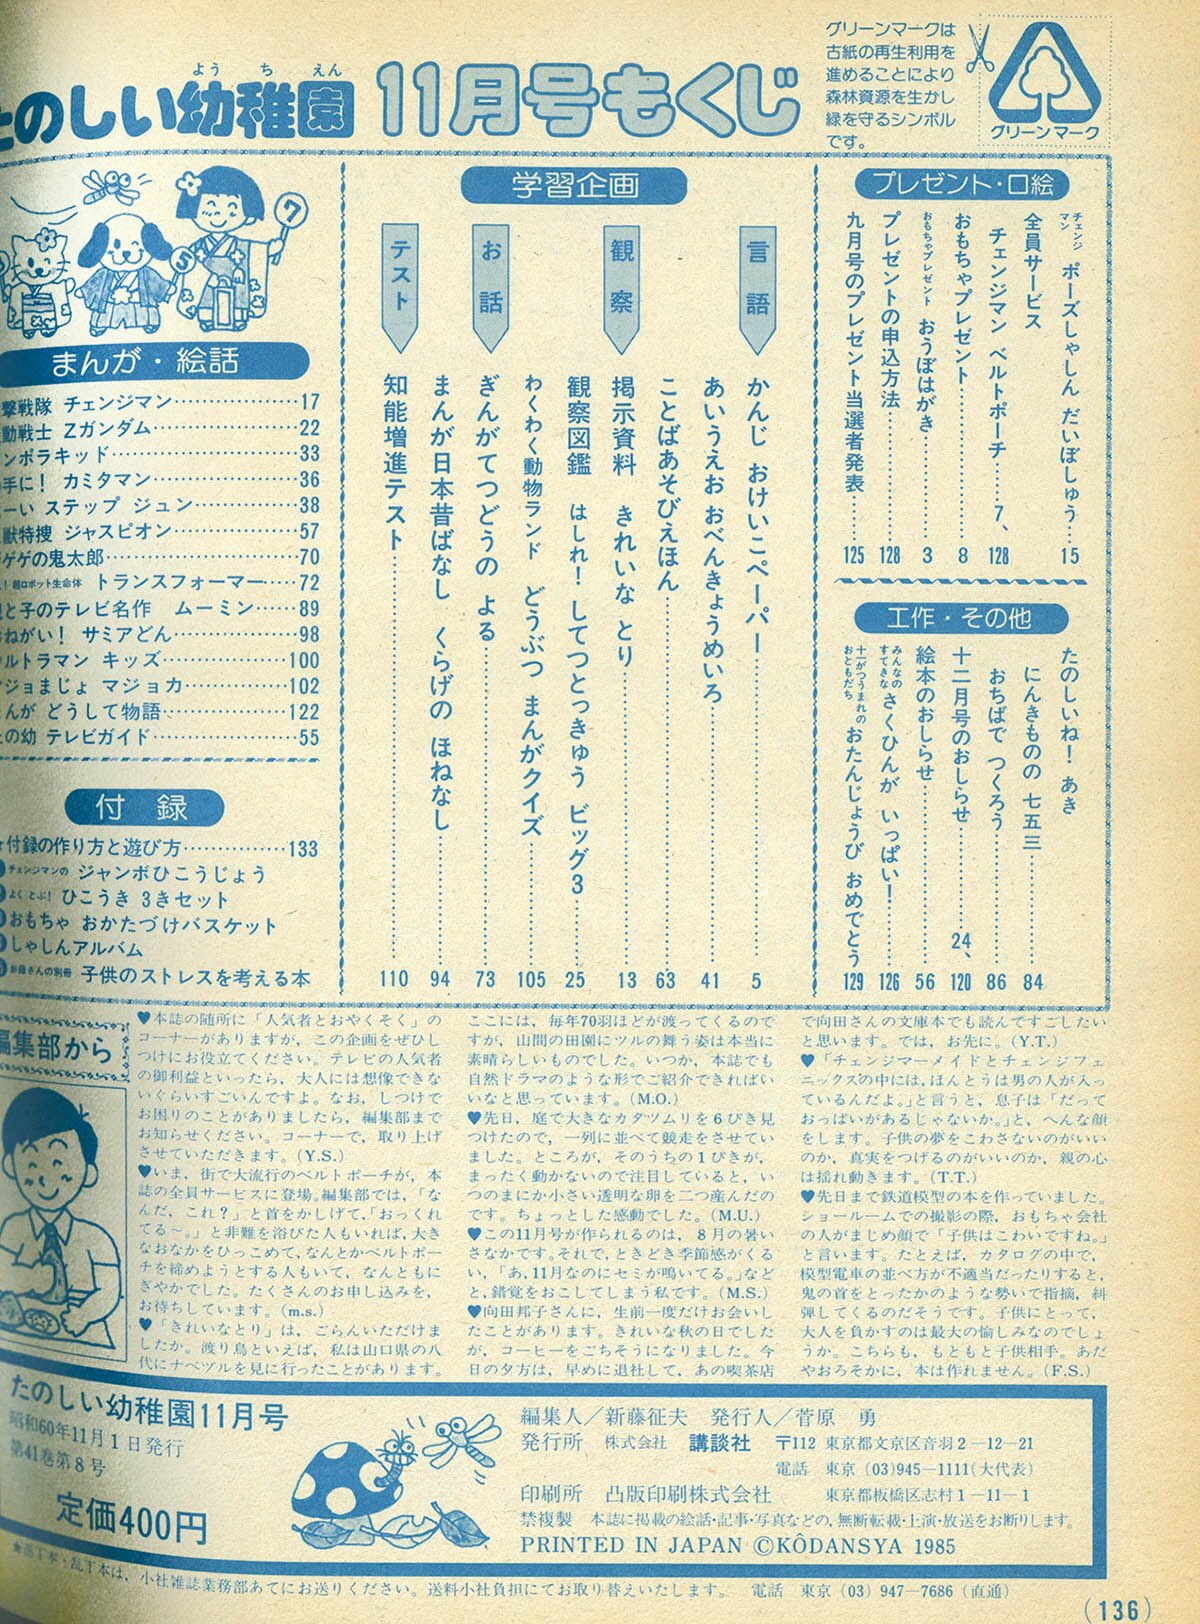 たのしい幼稚園 11月号もくじ
よう ち えん
グリーンマークは
古紙の再生利用を
進めることにより
森林資源を生かし
緑を守るシンボル
です。
グリーンマーク
プレゼント・口絵
チェンジマン ポーズしゃしん だいぼしゅう……15
全員サービス
チェンジマン ベルトポーチ……7、128
おもちゃプレゼント……8
おもちゃプレゼント おうぼはがき……3
プレゼントの申込方法……128
九月号のプレゼント当選者発表……125
工作・その他
たのしいね! あき
にんきものの 七五三……84
おちばで つくろう……86
十二月号のおしらせ……24、120
絵本のおしらせ……56
みんなの すてきな さくひんが いっぱい!……126
十一がつうまれの おともだち おたんじょうび おめでとう……129
学習企画
言語
かんじ おけいこペーパー……5
あいうえお おべんきょうめいろ……41
ことばあそびえほん……63
観察
掲示資料 きれいな とり……13
観察図鑑 はしれ! してつとっきゅう ビッグ3……25
わくわく動物ランド どうぶつ まんがクイズ……105
お話
ぎんがてつどうの よる……73
まんが日本昔ばなし くらげの ほねなし……94
テスト
知能増進テスト……110
7
5
まんが・絵話
撃戦隊 チェンジマン……17
動戦士 Zガンダム……22
ンポラキッド……33
手に! カミタマン……36
ーい ステップ ジュン……38
獣特捜 ジャスピオン……57
ゲゲの鬼太郎……70
! 超ロボット生命体 トランスフォーマー……72
と子のテレビ名作 ムーミン……89
ねがい! サミアどん……98
ルトラマン キッズ……100
ジョまじょ マジョカ……102
んが どうして物語……122
の幼 テレビガイド……55
付録
付録の作り方と遊び方……133
チェンジマンの ジャンボひこうじょう
よく とぶ! ひこうき 3きセット
おもちゃ おかたづけバスケット
しゃしんアルバム
お母さんの別冊 子供のストレスを考える本
編集部から
♥本誌の随所に「人気者とおやくそく」の
コーナーがありますが、この企画をぜひし
つけにお役立てください。テレビの人気者
の御利益といったら、大人には想像できな
いぐらいすごいんですよ。なお、しつけで
お困りのことがありましたら、編集部まで
お知らせください。コーナーで、取り上げ
させていただきます。(Y.S.)
♥いま、街で大流行のベルトポーチが、本
誌の全員サービスに登場。編集部では、「な
んだ、これ?」と首をかしげて、「おっくれ
てる〜。」と非難を浴びた人もいれば、大き
なおなかをひっこめて、なんとかベルトポー
チを締めようとする人もいて、なんともに
ぎやかでした。たくさんのお申し込みを、
お待ちしています。(m.s.)
♥「きれいなとり」は、ごらんいただけま
したか。渡り鳥といえば、私は山口県の八
代にナベヅルを見に行ったことがあります。
ここには、毎年70羽ほどが渡ってくるので
すが、山間の田園にツルの舞う姿は本当に
素晴らしいものでした。いつか、本誌でも
自然ドラマのような形でご紹介できればい
いなと思っています。(M.O.)
♥先日、庭で大きなカタツムリを6ぴき見
つけたので、一列に並べて競走をさせてい
ました。ところが、そのうちの1ぴきが、
まったく動かないので注目していると、い
つのまにか小さい透明な卵を二つ産んだの
です。ちょっとした感動でした。(M.U.)
♥この11月号が作られるのは、8月の暑い
さなかです。それで、ときどき季節感がくる
い、「あ、11月なのにセミが鳴いてる。」など
と、錯覚をおこしてしまう私です。(M.S.)
♥向田邦子さんに、生前一度だけお会いし
たことがあります。きれいな秋の日でした
が、コーヒーをごちそうになりました。今
日の夕方は、早めに退社して、あの喫茶店
で向田さんの文庫本でも読んですごしたい
と思います。では、お先に。(Y.T.)
♥「チェンジマーメイドとチェンジフェ
ニックスの中には、ほんとうは男の人が入っ
ているんだよ。」と言うと、息子は「だって
おっぱいがあるじゃないか。」と、へんな顔
をします。子供の夢をこわさないのがいい
のか、真実をつげるのがいいのか、親の心
は揺れ動きます。(T.T.)
♥先日まで鉄道模型の本を作っていました。
ショールームでの撮影の際、おもちゃ会社
の人がまじめ顔で「子供はこわいですね。」
と言います。たとえば、カタログの中で、
模型電車の並べ方が不適当だったりすると、
鬼の首をとったかのような勢いで指摘、糾
弾してくるのだそうです。子供にとって、
大人を負かすのは最大の愉しみなのでしょ
うか。こちらも、もともと子供相手。あだ
やおろそかに、本は作れません。(F.S.)
たのしい幼稚園11月号
昭和60年11月1日発行
第41巻第8号
定価400円
編集人/新藤征夫 発行人/菅原 勇
発行所 株式会社 講談社 〒112 東京都文京区音羽2−12−21
電話 東京 (03)945−1111(大代表)
印刷所 凸版印刷株式会社 東京都板橋区志村1−11−1
禁複製 本誌に掲載の絵話・記事・写真などの、無断転載・上演・放送をお断りします。
PRINTED IN JAPAN ©KÔDANSYA 1985
★落丁本・乱丁本は、小社雑誌業務部あてにお送りください。送料小社負担にてお取り替えいたします。 電話 東京 (03) 947−7686 (直通)
(136)